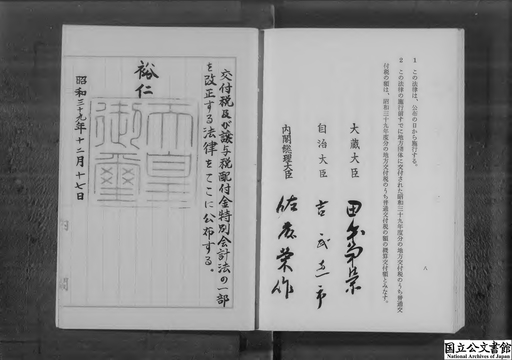 1　この法律は、公布の日から施行する。
2　この法律の施行前すでに地方団体に交付された昭和三十九年度分の地方交付税のうち普通交
付税の額は、昭和三十九年度分の地方交付税のうち普通交付税の額の概算交付額とみなす。
八
大蔵大臣　田中角榮
自治大臣　吉武恵市
内閣総理大臣　佐藤榮作
交付税及び譲与税配付金特別会計法の一部
を改正する法律をここに公布する。
裕仁
天皇
御璽
昭和三十九年十二月十七日
国立公文書館
National Archives of Japan